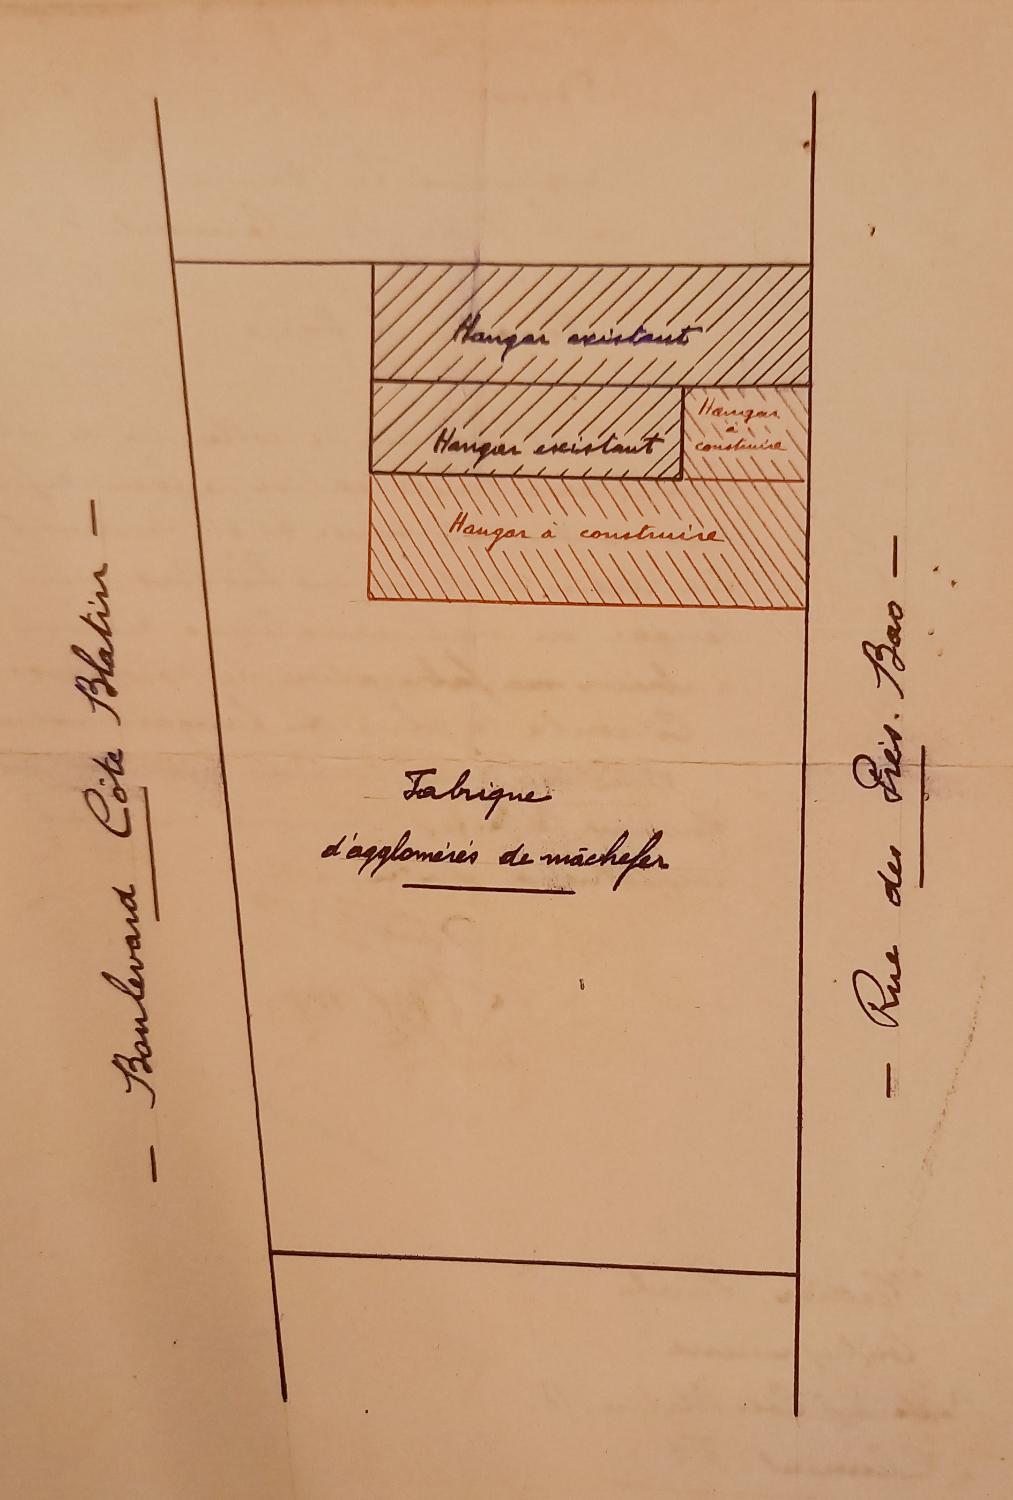 Hangar existant
Hangar existant
Hangar
à
construire
Hangar à construire
Fabrique
d'agglomérés de mâchefer
— Boulevard Côte Blatin —
— Rue des Prés. Bas —